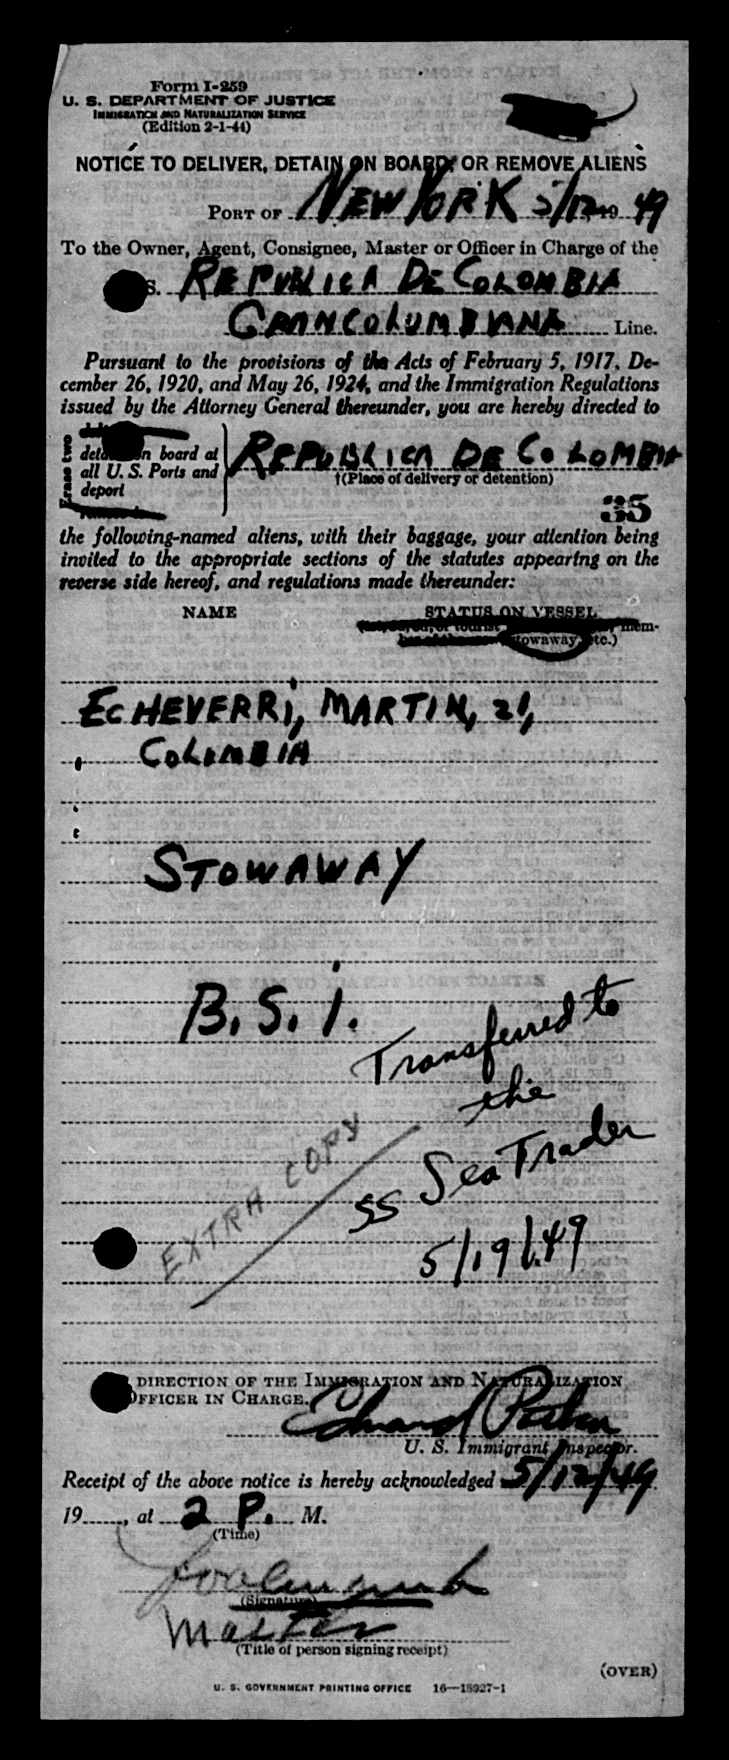 Form I-259
U. S. DEPARTMENT OF JUSTICE
IMMIGRATION AND NATURALIZATION SERVICE
(Edition 2-1-44)
NOTICE TO DELIVER, DETAIN ON BOARD, OR REMOVE ALIENS
PORT OF NEW YORK 5/12 19 49
To the Owner, Agent, Consignee, Master or Officer in Charge of the
S. REPUBLICA DE COLOMBIA
GRANCOLUMBIANA Line.
Pursuant to the provisions of the Acts of February 5, 1917, De-
cember 26, 1920, and May 26, 1924, and the Immigration Regulations
issued by the Attorney General thereunder, you are hereby directed to
Erase two
detain on board at
all U. S. Ports and
deport
REPUBLICA DE COLOMBIA
†(Place of delivery or detention)
35
the following-named aliens, with their baggage, your attention being
invited to the appropriate sections of the statutes appearing on the
reverse side hereof, and regulations made thereunder:
NAME STATUS ON VESSEL
or tourist mem-
stowaway, etc.)
ECHEVERRi, MARTIN, 21,
COLOMBIA
STOWAWAY
B. S. i.
Transferred to
the
SS Sea Trader
5/19/49
EXTRA COPY
DIRECTION OF THE IMMIGRATION AND NATURALIZATION
OFFICER IN CHARGE.
Edward
U. S. Immigrant Inspector.
Receipt of the above notice is hereby acknowledged 5/12/49
19......, at 2 P. M.
(Time)
(Signature)
Master
(Title of person signing receipt)
(OVER)
U. S. GOVERNMENT PRINTING OFFICE 16—18927-1